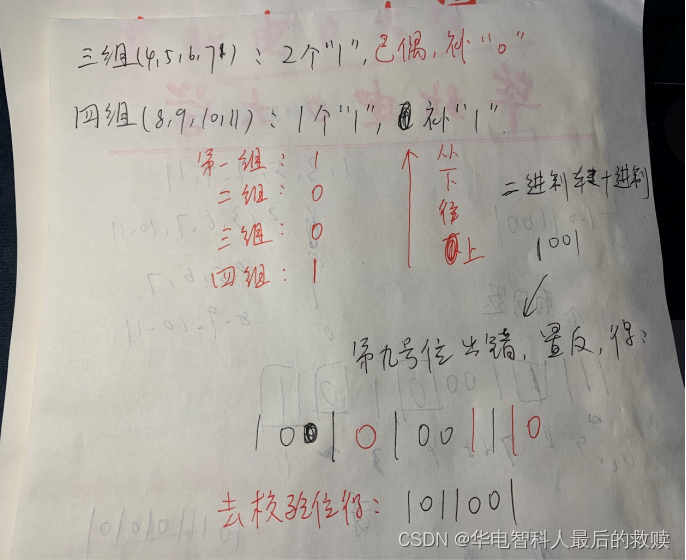 三组(4,5,6,7):2个"1",已偶,补"0"
四组(8,9,10,11):1个"1",补"1"
第一组:1
二组:0
三组:0
四组:1
从下往上
二进制转十进制
1001
第九号位出错,置反,得:
100101001110
去校验位得:1011001
CSDN @华电智科人最后的救赎